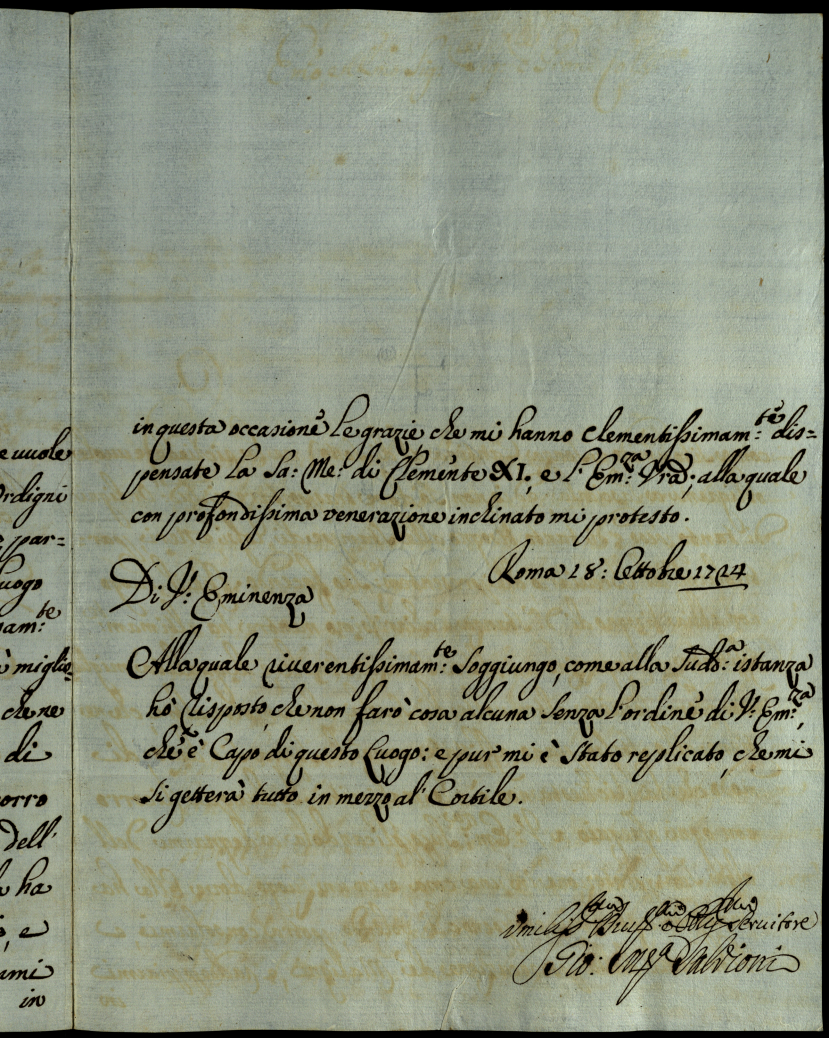 e vuole
Ordigni
par=
Luogo
sam:te
è miglio=
che ne
di
corro
dell'
ha
, e
ami
in
in questa occasione le grazie che mi hanno clementissimam:te dis=
pensate la Sa: Me: di Clemente XI., e l'Em:za Vra, alla quale
con profondissima venerazione inclinato mi protesto.
Roma 18: Ottobre 1724
Di V: Eminenza
Alla quale riverentissimam:te soggiungo, come alla sudd:a istanza
hò risposto, che non farò cosa alcuna senza l'ordine di V: Em:za,
che è Capo di questo Luogo: e pur mi è stato replicato, che mi
si getterà tutto in mezzo al' Cortile.
Servitore
Gio: Ma Salvioni